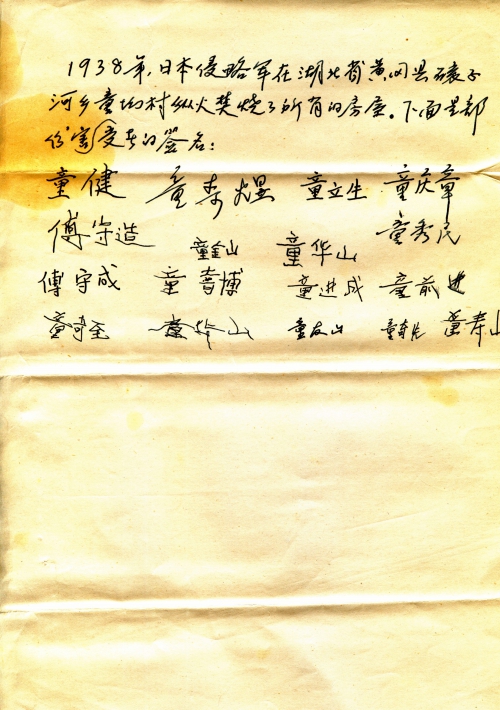 1938年,日本侵略军在湖北省黄冈县礳子
河乡童坳村纵火焚烧了所有的房屋。下面是部
份受害者的签名:
童健 童寿 童立生 童庆章
傅守造 童金山 童华山 童秀民
傅守成 童喜博 童进成 童前进
童奇至 童华山 童友山 童寿山